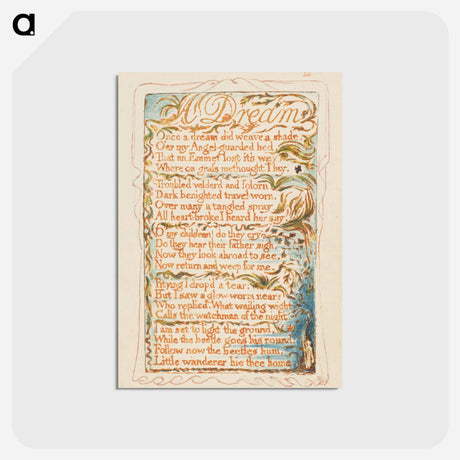 a
A Dream
Once a dream did weave a shade,
O'er my Angel-guarded bed,
That an Emmet lost it's way
Where on grass methought I lay.
Troubled wilderd and folorn
Dark benighted travel-worn,
Over many a tangled spray
All heart-broke I heard her say.
O my children! do they cry
Do they hear their father sigh.
Now they look abroad to see,
Now return and weep for me.
Pitying I drop'd a tear:
But I saw a glow-worm near:
Who replied. What wailing wight
Calls the watchman of the night.
I am set to light the ground,
While the beetle goes his round:
Follow now the beetles hum,
Little wanderer hie thee home